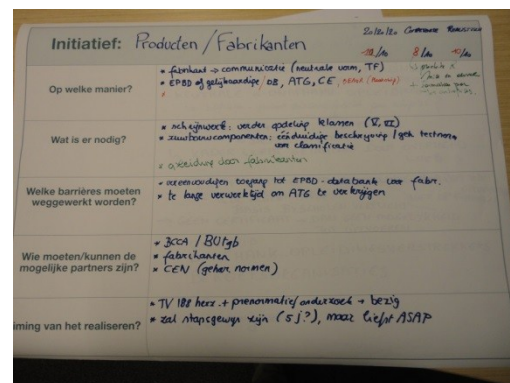 Initiatief: Producten / Fabrikanten
8/10
10/10
Op welke manier?
* fabrikant → communicatie (neutrale vorm, TF)
* EPBD of gelijkwaardige / DB, ATG, CE,
*
Wat is er nodig?
* schrijnwerk: verder opdeling klassen
* ruwbouwcomponenten: éénduidige beschrijving / geh testnorm
voor classificatie
* opleiding door fabrikanten
Welke barrières moeten
weggewerkt worden?
* vereenvoudigen toegang tot EPBD-databank voor fabr.
* te lange verwerktijd om ATG te verkrijgen
Wie moeten/kunnen de
mogelijke partners zijn?
* BCCA / BUtgb
* fabrikanten
* CEN (geher normen)
iming van het realiseren?
* TV 188 herz. + prenormatief onderzoek → bezig
* zal stapsgewijs zijn (5 j?), maar liefst ASAP